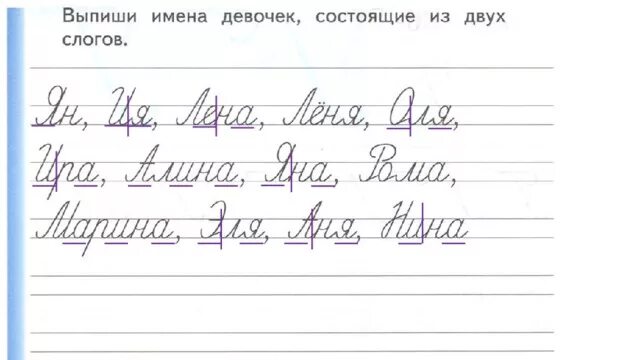 Выпиши имена девочек, состоящие из двух
слогов.
Ян, Ия, Лена, Лёня, Оля,
Ира, Алина, Яна, Рома,
Марина, Эля, Аня, Нина